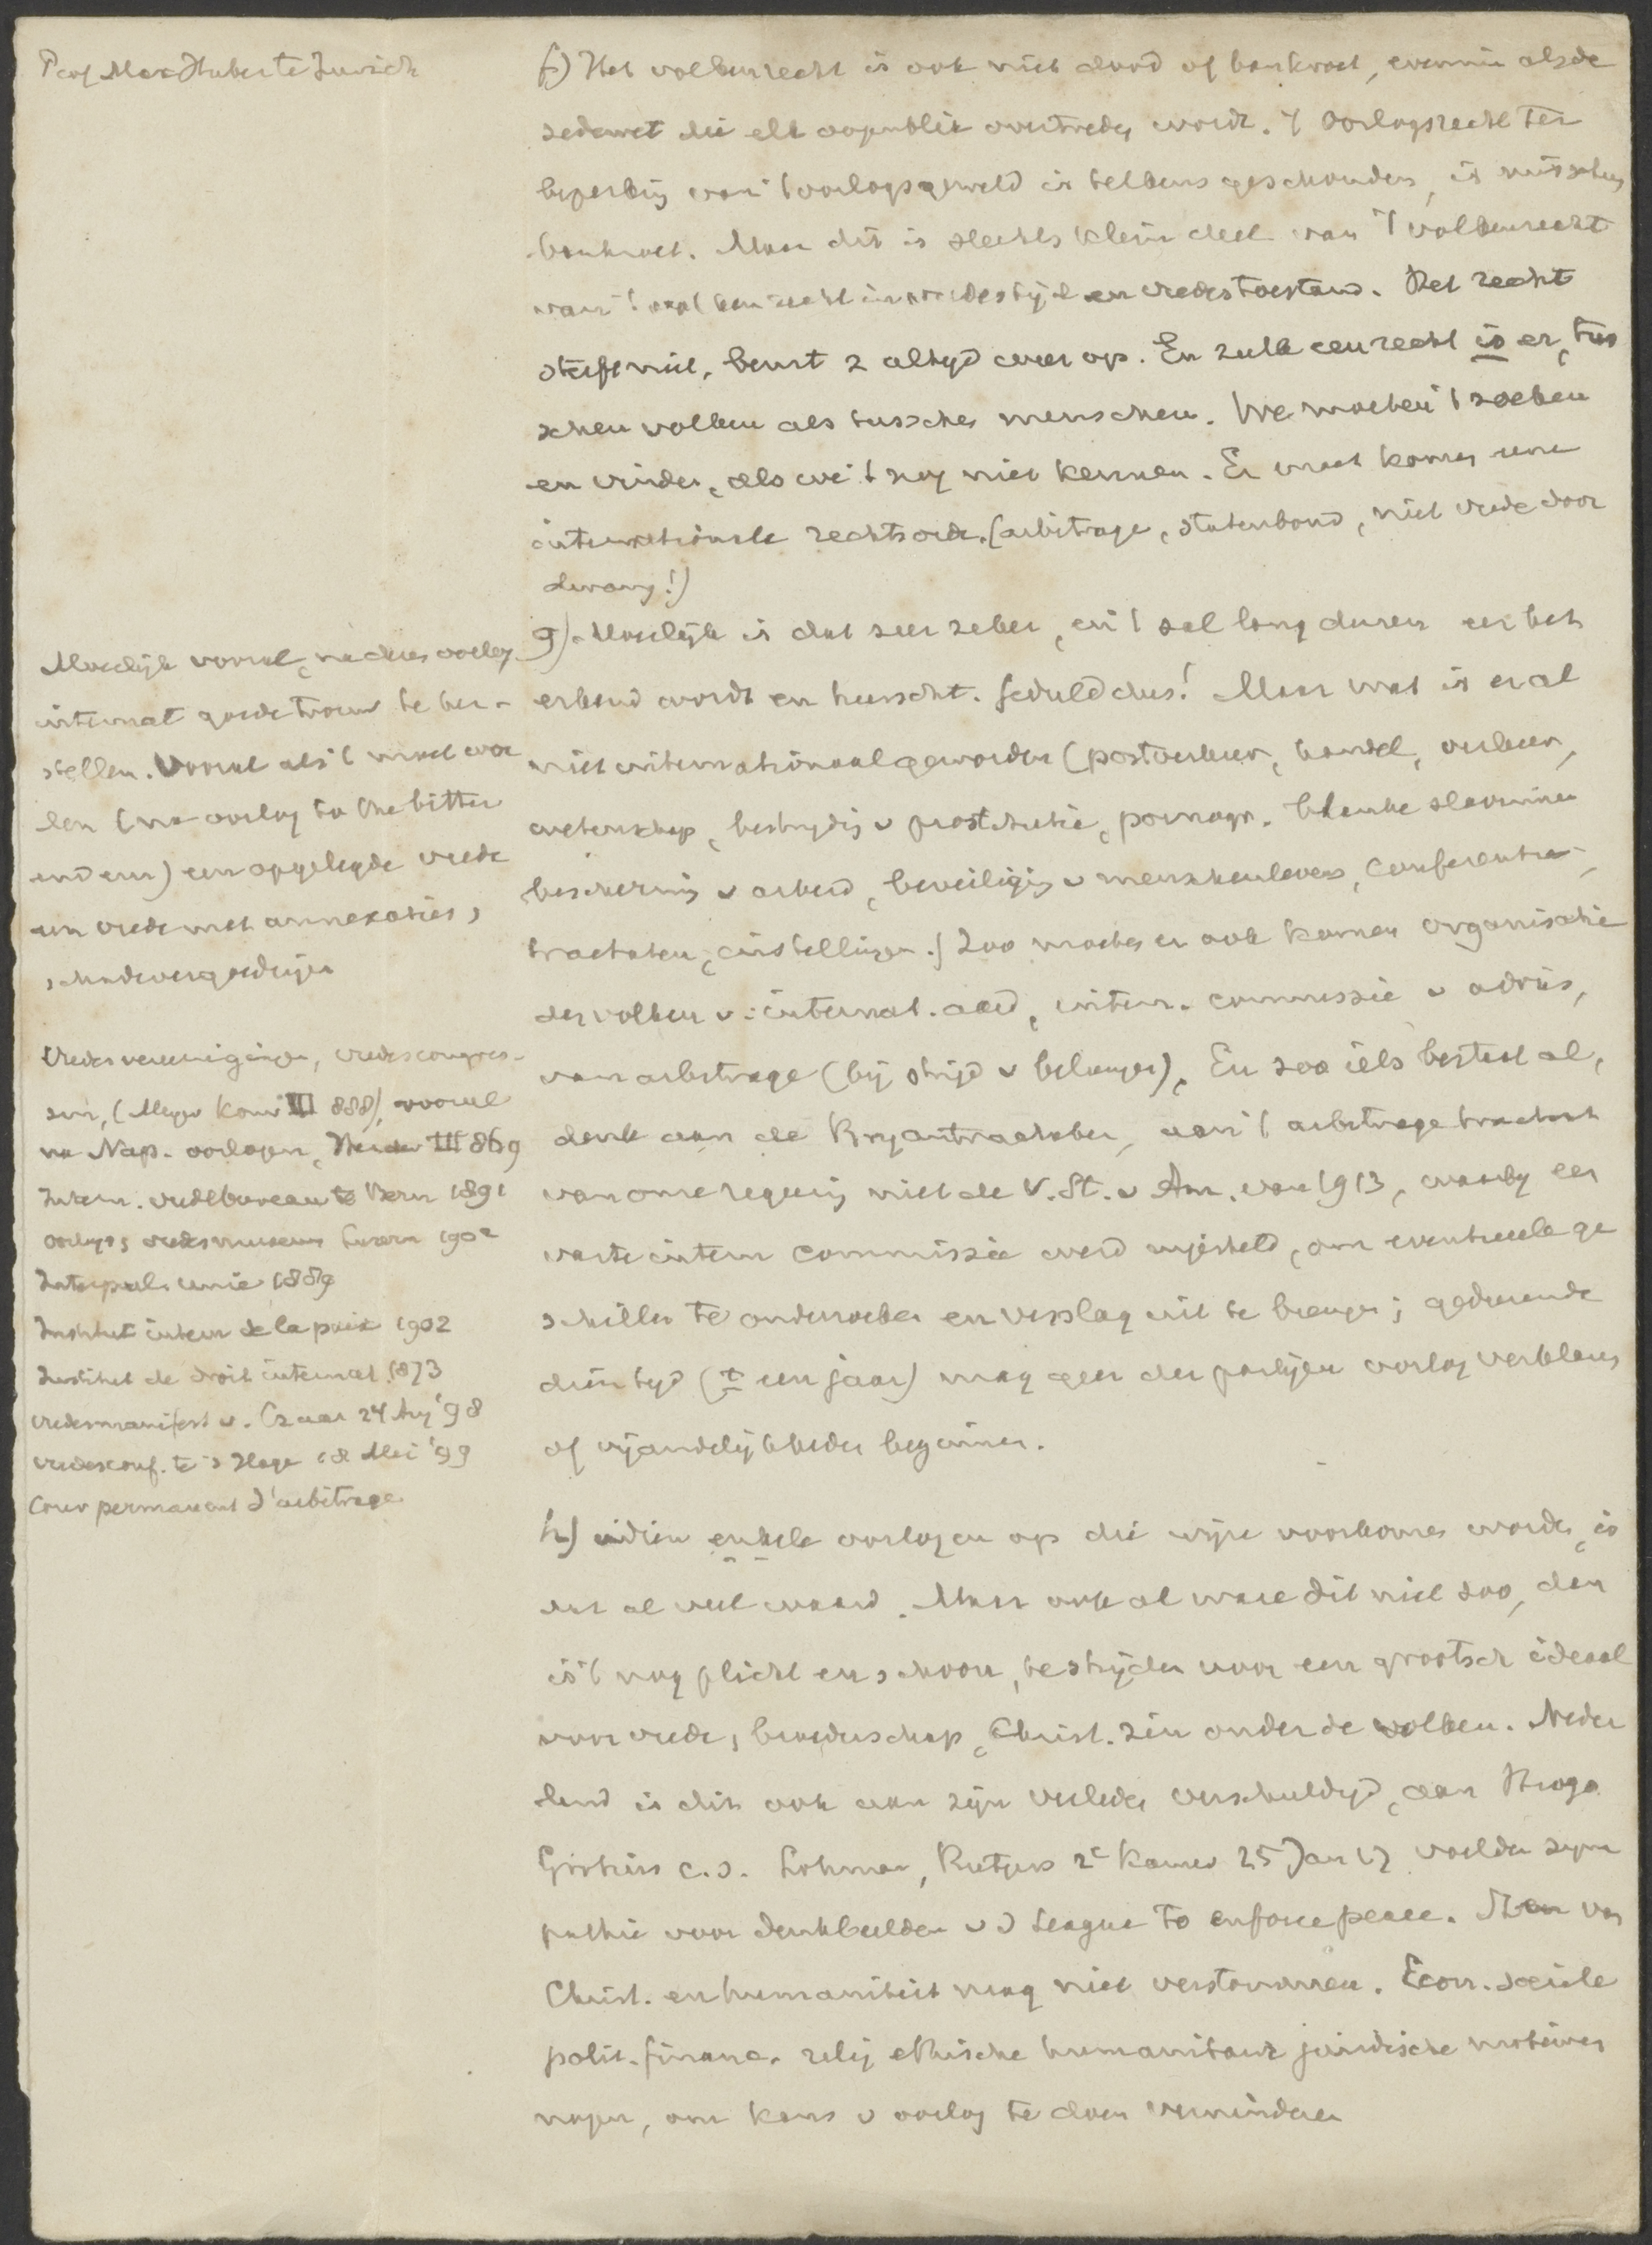 Prof Max Huber te Zurich
f) Het volkenrecht is ook niet dood of bankroet, evenmin als de
zedewet die elk oogenblik overtreden wordt. 't Oorlogsrecht ter
beperking van 't oorlogsgeweld is telkens geschonden, is misschien
bankroet. Maar dit is slechts klein deel van 't volkenrecht
van 't volkenrecht in vredestijd en vredestoestand. Het recht
sterft niet, beurt z altijd weer op. En zulk een recht is er, tus
schen volken als tusschen menschen. We moeten 't zoeken
en vinden, als we 't nog niet kennen. Er moet komen eene
internationale rechtsorde. (arbitrage, statenbond, niet vrede door
dwang!)
g) Moeilijk is dat zeer zeker, en 't zal lang duren eer het
erkend wordt en heerscht. Geduld dus! Maar wat is er al
niet internationaal geworden (postverkeer, handel, verkeer,
wetenschap, bestrijdig v prostitutie, pornogr. blanke slavinnen
bescherming v arbeid, beveiliging v menschenlevens, conferenties,
tractaten, instellingen.) Zoo moeten er ook komen organisatie
der volken v. internat. aard, intern. commissie v advies,
van arbitrage (bij strijd v belangen). En zoo iets bestaat al,
denk aan de Bryantractaten, aan 't arbitrage tractaat
van onze regeering met de V. St. v Am. van 1913, waarbij een
vaste intern commissie werd ingesteld, om eventueele ge
schillen te onderzoeken en verslag uit te brengen; gedurende
dien tijd (± een jaar) mag geen der partijen oorlog verklaren
of vijandelijkheden beginnen.
h) indien enkele oorlogen op die wijze voorkomen worden, is
dat al veel waard. Maar ook al ware dit niet zoo, dan
is 't nog plicht en schoon, te strijden voor een grootsch ideaal
voor vrede, broederschap, Christ. zin onder de volken. Neder
land is dit ook aan zijn verleden verschuldigd, aan Hugo
Grotius c.s. Lohman, Rutgers 2e Kamer 25 Jan 17 voelden sym
pathie voor denkbeelden v d League to enforce peace. Stem van
Christ. en humaniteit mag niet verstommen. Econ. sociale
polit. financ. relig ethische humanitaire juridische motieven
nopen, om kans v oorlog te doen verminderen
Moeilijk vooral, na dezen oorlog
internat goede trouw te her-
stellen. Vooral als 't mocht wor
den (na oorlog to the bitter
end een) een opgelegde vrede
een vrede met annexaties,
schadevergoedingen
Vredesvereenigingen, vredescongres-
sen, (Meyer Konv III 888), vooral
na Nap. oorlogen, Herder III 869
Intern. vredebureau te Bern 1891
oorlogs, vredesmuseum Luzern 1902
Interparl. unie 1889
Institut intern de la paix 1902
Institut de droit internat. 1873
vredesmanifest v. Czaar 24 Aug '98
vredesconf. te 's Hage 18 Mei '99
Cour permanent d'arbitrage